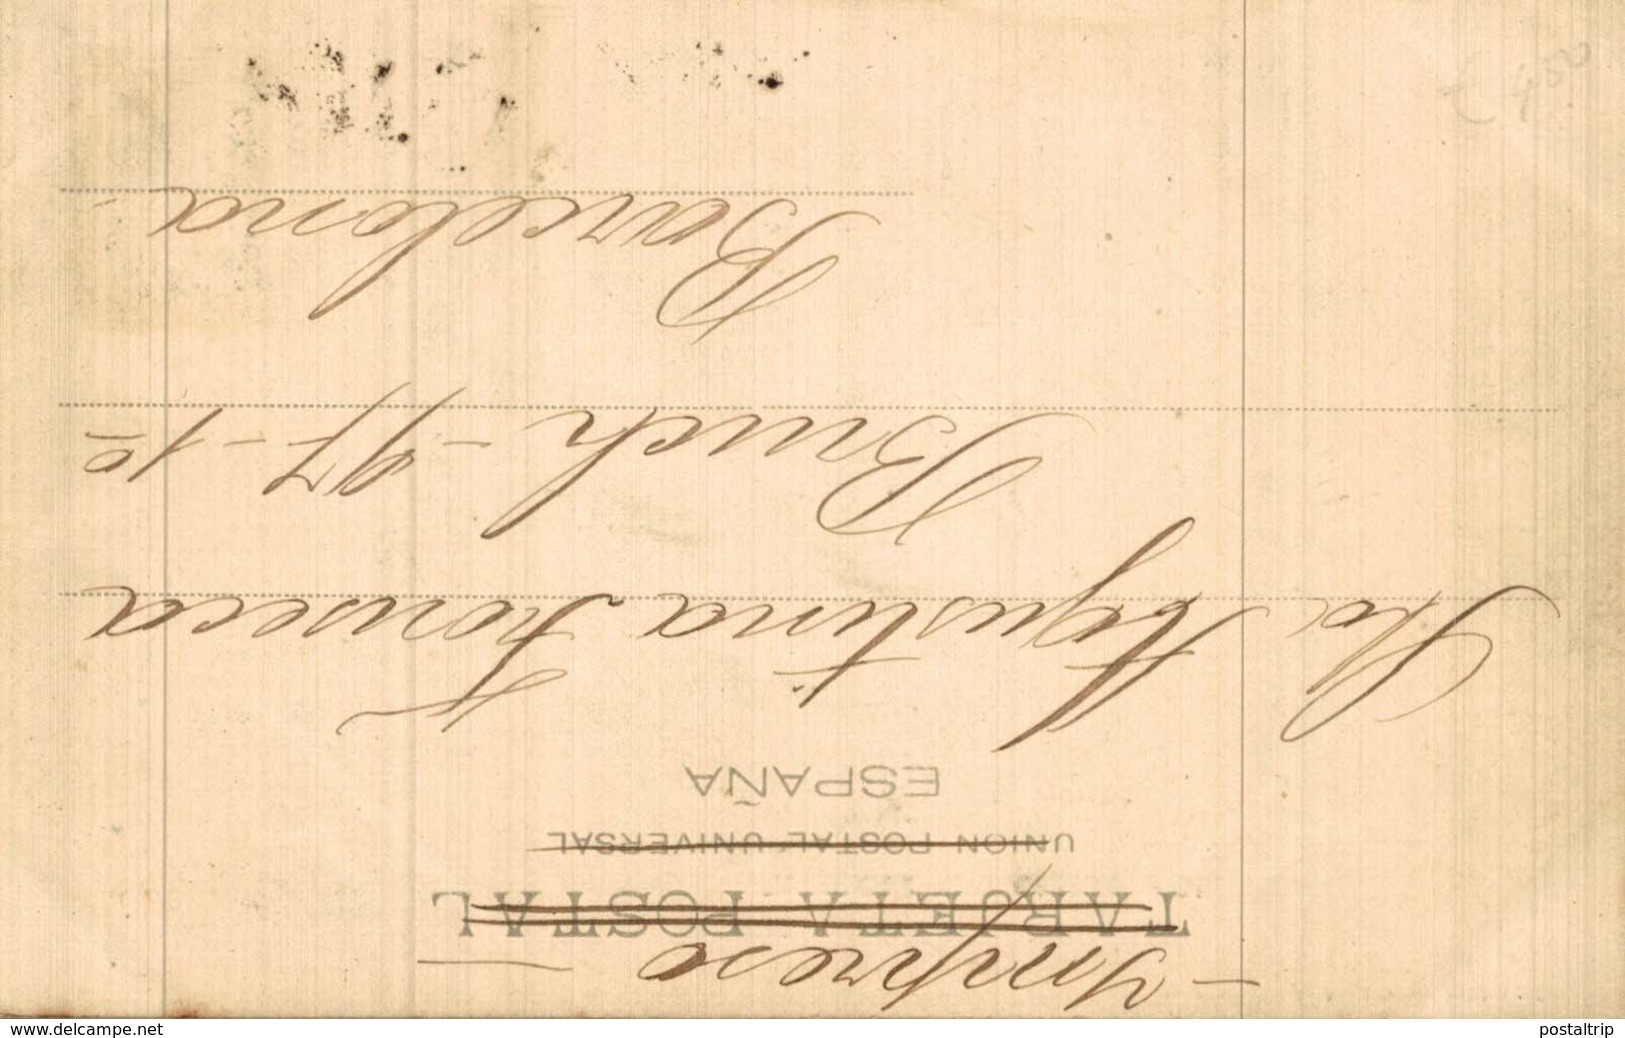 - Impreso -
TARJETA POSTAL
UNION POSTAL UNIVERSAL
ESPAÑA
Sta Agustina Fonseca
Bruch - 97 - 1º
Barcelona
www.delcampe.net
postaltrip